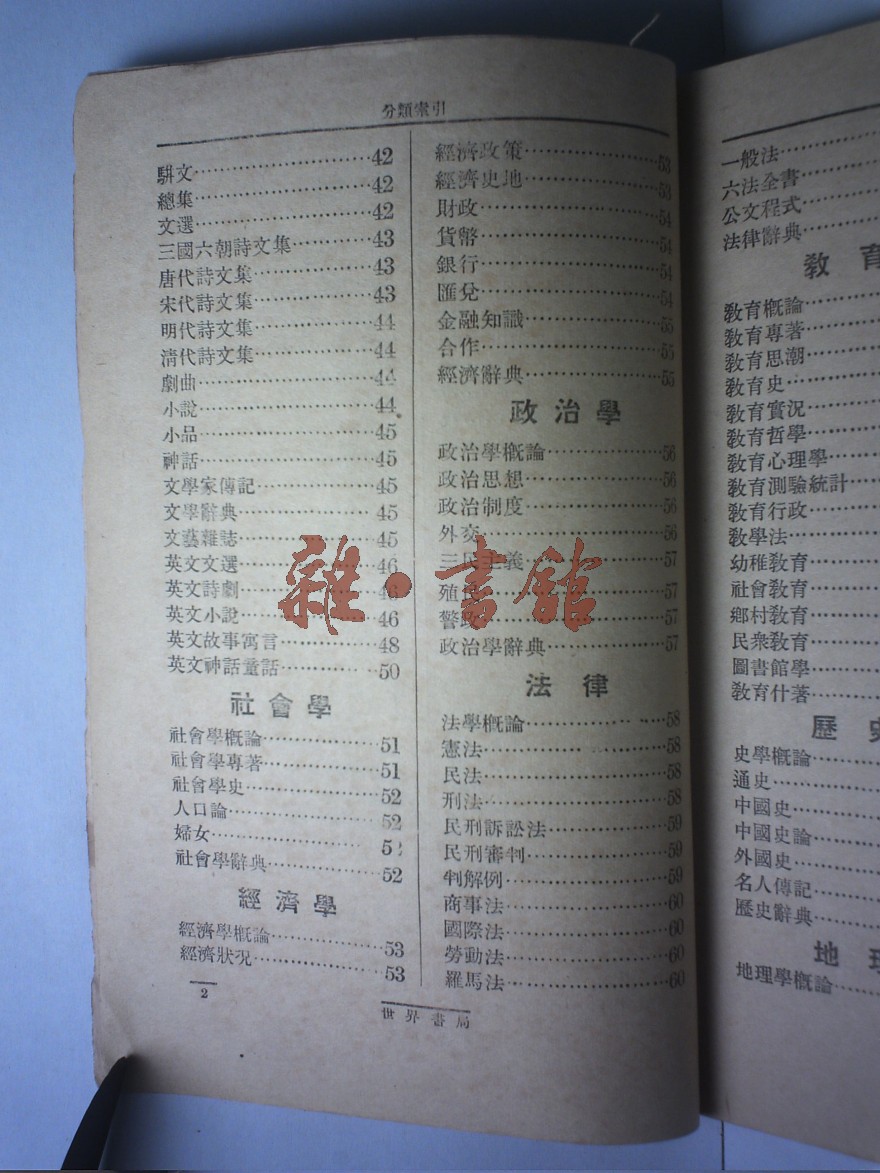 分類索引
駢文……42
總集……42
文選……42
三國六朝詩文集……43
唐代詩文集……43
宋代詩文集……43
明代詩文集……44
清代詩文集……44
劇曲……44
小說……44
小品……45
神話……45
文學家傳記……45
文學辭典……45
文藝雜誌……45
英文文選……46
英文詩劇……
英文小說……46
英文故事寓言……48
英文神話童話……50
社會學
社會學概論……51
社會學專著……51
社會學史……52
人口論……52
婦女……52
社會學辭典……52
經濟學
經濟學概論……53
經濟狀況……53
2
經濟政策……53
經濟史地……53
財政……54
貨幣……54
銀行……54
匯兌……54
金融知識……55
合作……55
經濟辭典……55
政治學
政治學概論……56
政治思想……56
政治制度……56
外交……56
三民主義……57
殖……57
警政……57
政治學辭典……57
法律
法學概論……58
憲法……58
民法……58
刑法……58
民刑訴訟法……59
民刑審判……59
判解例……59
商事法……60
國際法……60
勞動法……60
羅馬法……60
世界書局
雜·書館
一般法……
六法全書……
公文程式……
法律辭典……
教育
教育概論……
教育專著……
教育思潮……
教育史……
教育實況……
教育哲學……
教育心理學……
教育測驗統計……
教育行政……
教學法……
幼稚教育……
社會教育……
鄉村教育……
民衆教育……
圖書館學……
教育什著……
歷史
史學概論……
通史……
中國史……
中國史論……
外國史……
名人傳記……
歷史辭典……
地理
地理學概論……